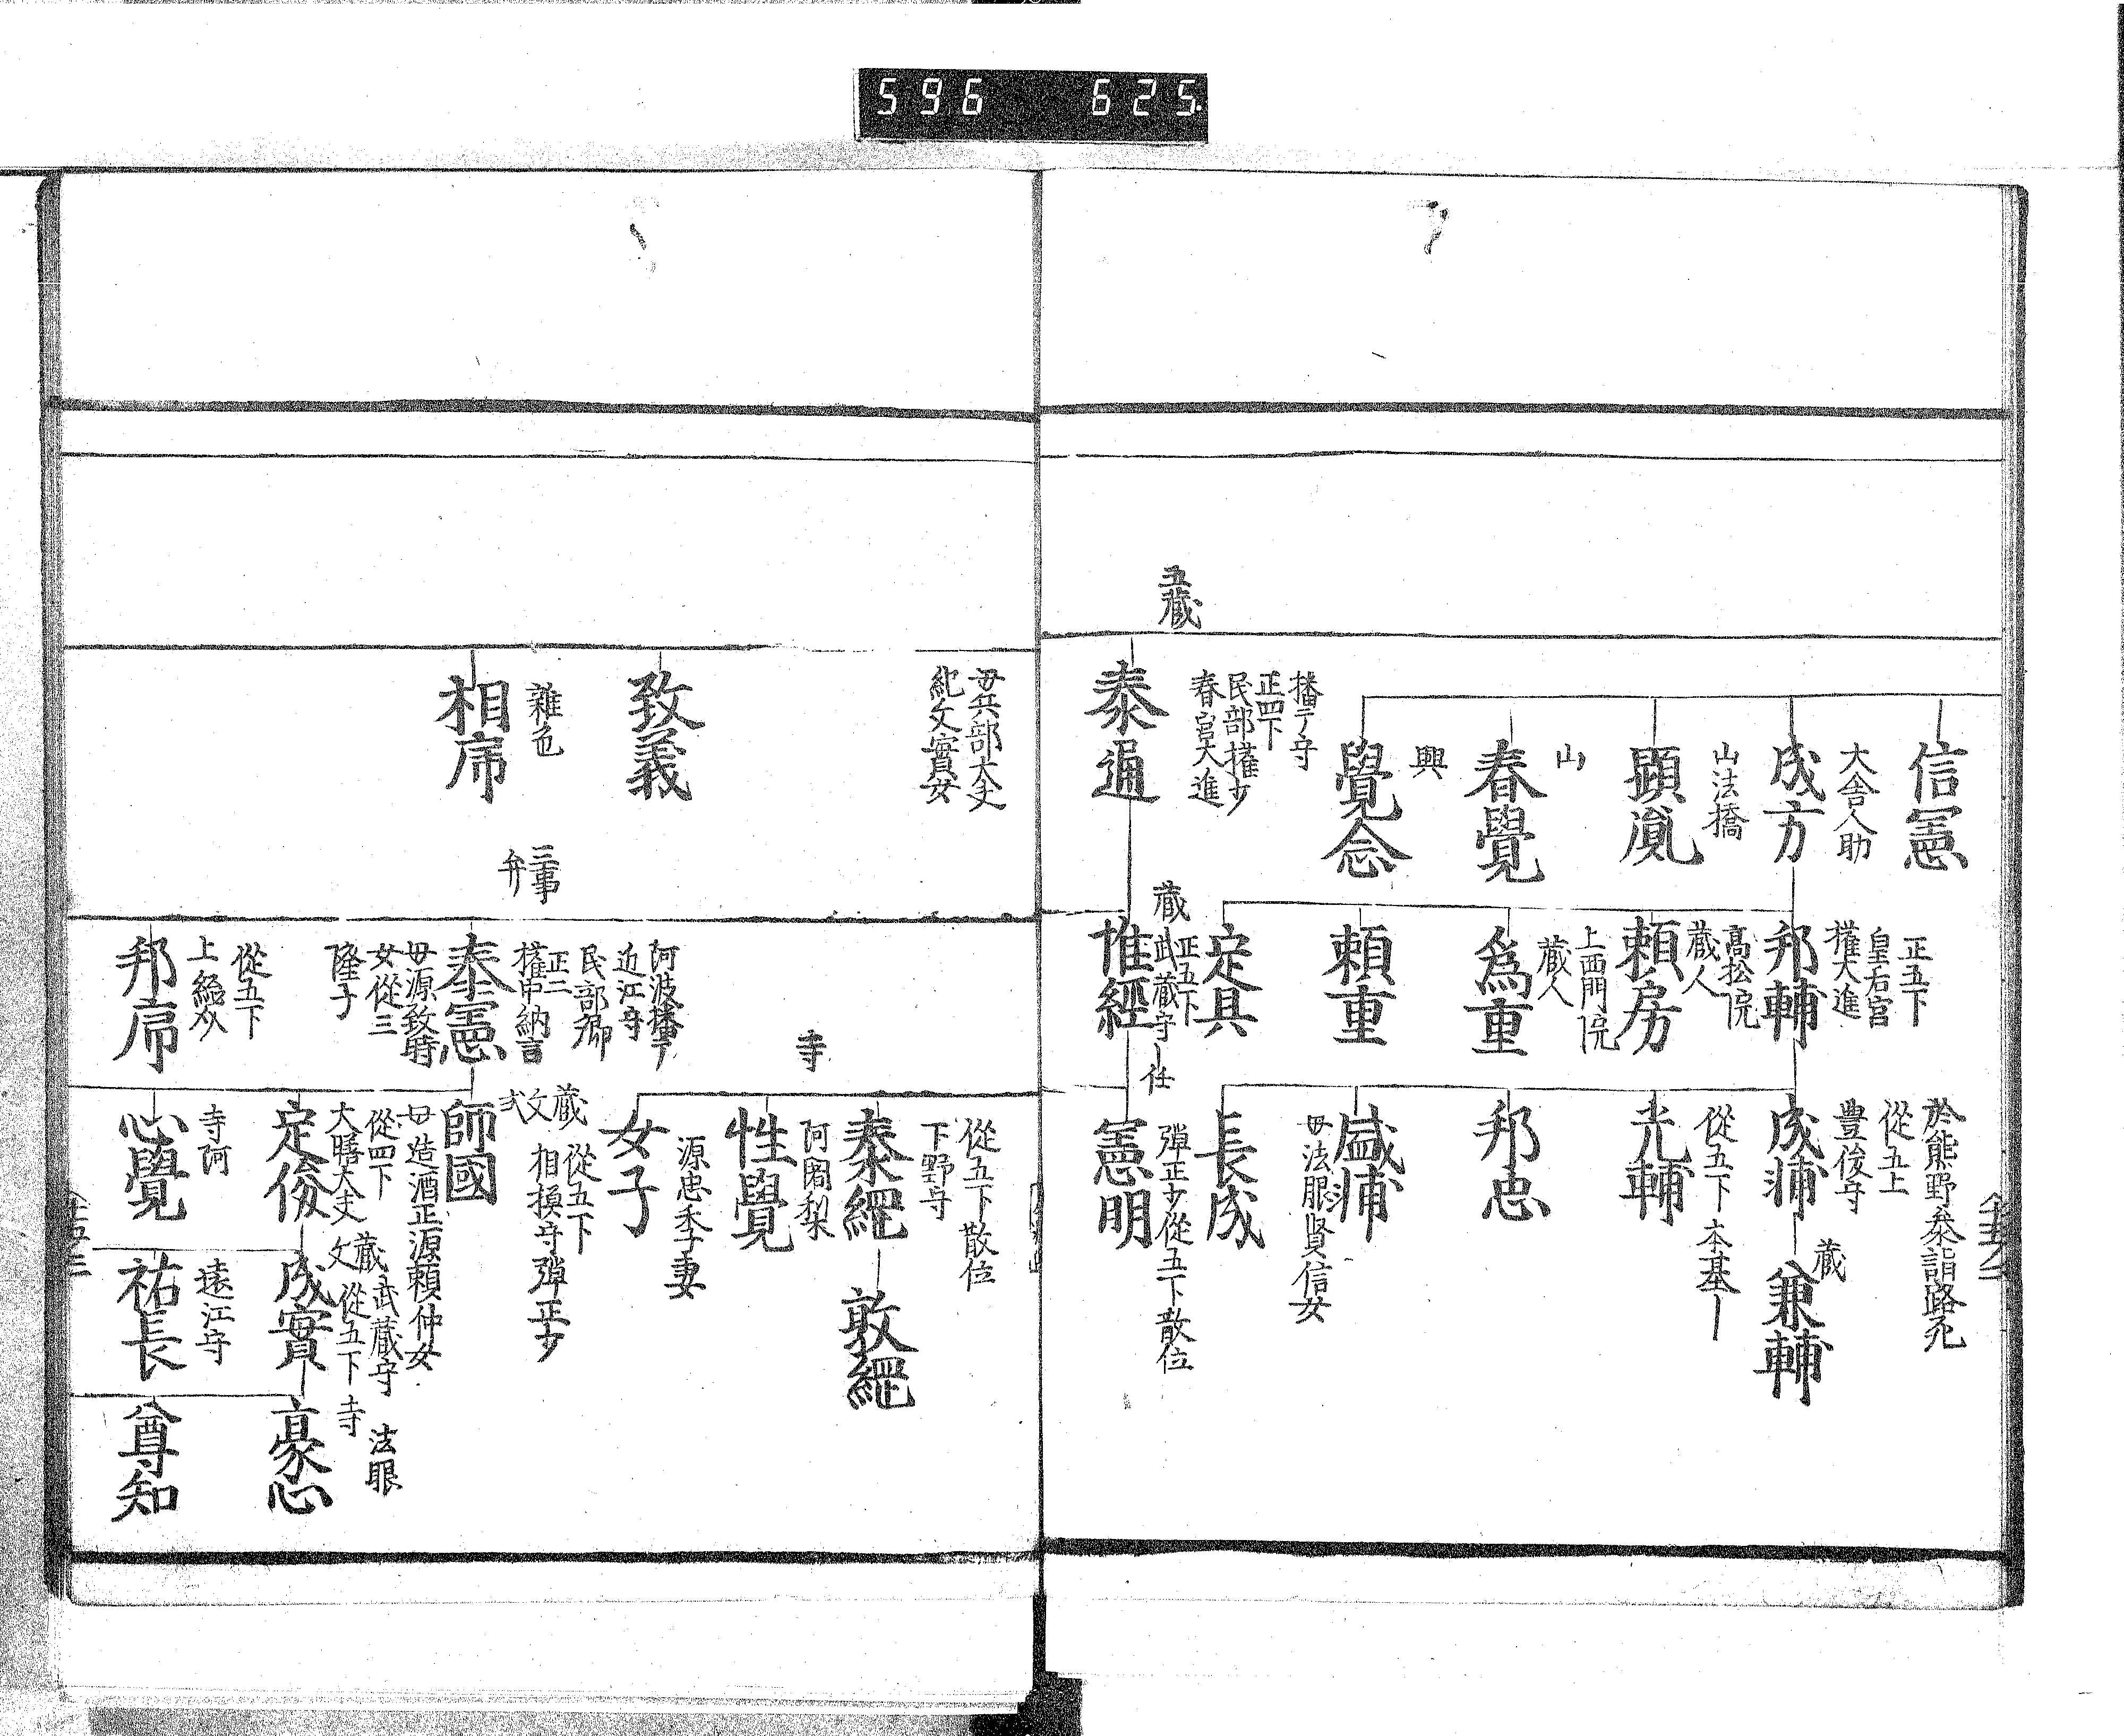 596 625
信憲
大舎人助
成方
山法橋
顕胤
山
春覺
興
覺念
播丁守
正四下
民部權少
春宮大進
五蔵
泰通
正五下
皇右宮
權大進
邦輔
高松院
蔵人
頼房
上西門院
蔵人
為重
頼重
定具
蔵
正五下
武蔵守
惟經
任
於熊野参詣路死
從五上
豊後守
成輔
蔵
兼輔
從五下 本基
光輔
邦忠
盛輔
母法眼賢信女
長成
彈正少從五下散位
憲明
母兵部大夫
紀文實女
致義
雜色
相席
三事
弁
阿波播丁
近江守
民部卿
正二
權中納言
泰憲
母源致時
女從三
隆子
從五下
上総介
邦席
從五下散位
下野守
泰經
敦經
寺
阿闍梨
性覺
源忠季妻
女子
蔵
文
從五下
相換守彈正少
師國
母造酒正源頼仲女
從四下
大膳大夫
定俊
蔵
文
武蔵守
從五下
成實
寺
法眼
豪心
寺阿
心覺
遠江守
祐長
尊知